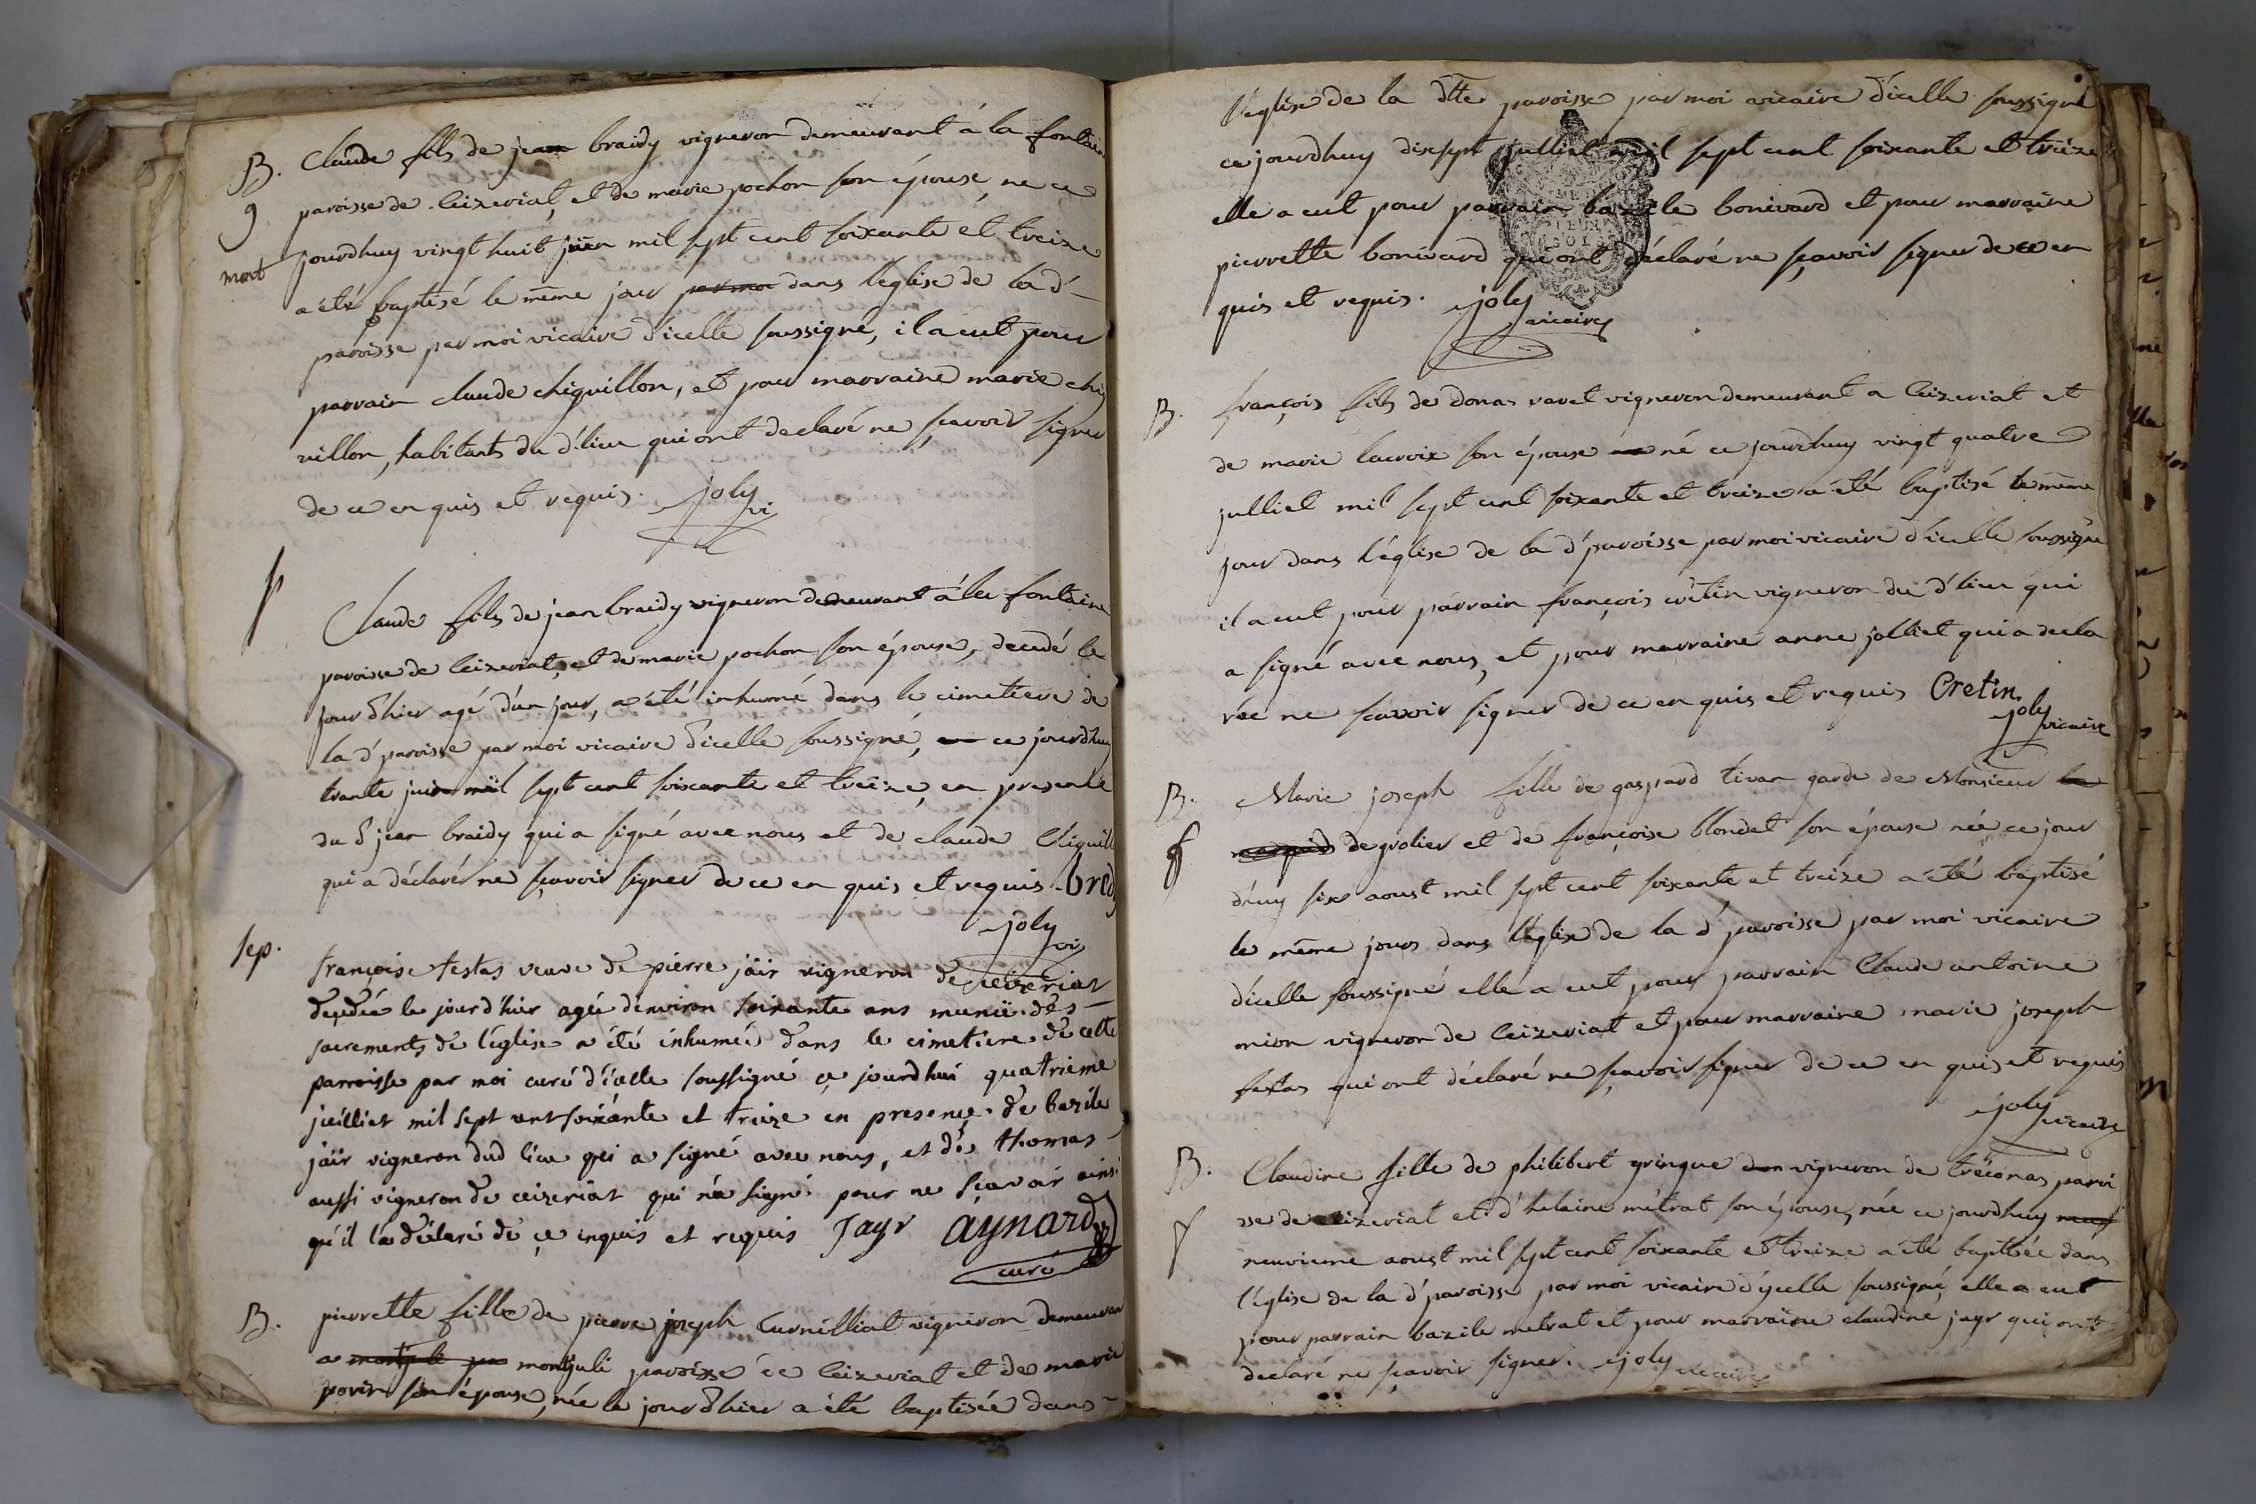 B. Claude fils de jean braidy vigneron demeurant á la fontain
g paroisse de Ceizeriat, et de marie pochon son épouse, ne ce
mort jourdhuy vingt huit juin mil sept cent soixante et treize
a été baptisé le même jour par moi dans l'eglise de la d'
paroisse par moi vicaire d'icelle soussigné, il a eut pour
parrain claude chiquillon, et pour marraine marie chi
uillon, habitants du d'lieu qui ont declaré ne sçavoir signer
de ce en quis et requis. joly vi
Claude fils de jean braidy vigneron demeurant á la fontaine
paroisse de Ceizeriat, et de marie pochon son épouse, decedé le
jour d'hier agé d'un jour, a été inhumé dans le cimetiere de
la d' paroisse par moi vicaire d'icelle soussigné, ce jourdhuy
trante juin mil sept cent soixante et treize, en presence
du d' jean braidy qui a signé avec nous et de claude Chiquill
qui a déclaré ne sçavoir signer de ce en quis et requis. bredy
joly vi
sep. françoise testas veuve de pierre jaïr vigneron de ceizeriat
decedée le jourd'hier agée d'environ soixante ans munie des
sacrements de l'église a été inhumée dans le cimetiere de cette
parroisse par moi curé d'icelle soussigné ce jourdhui quatrieme
juilliet mil sept cent soixante et treize en presence de bazile
jaïr vigneron dud lieu qui a signé avec nous, et de thomas
aussi vigneron de ceizeriat qui n'a signé pour ne sçavoir ainsi
qu'il l'a déclaré de ce enquis et requis Jayr aynard
curé
B. pierrette fille de pierre joseph Curnilliat vigneron demeuran
a montjuli paroisse de Ceizeriat et de marie
porin son épouse, née le jour d'hier a été baptisée dans
l'eglise de la dtte paroisse par moi vicaire d'icelle soussigné
ce jourdhuy dixsept julliet mil sept cent soixante et treize
elle a eut pour parrain bazile bonivard et pour marraine
pierrette bonivard qui ont déclaré ne sçavoir signer de ce en
quis et requis. joly
vicaire
B. françois fils de donas ravet vigneron demeurant a Ceizeriat et
de marie lacroix son épouse né ce jourdhuy vingt quatre
julliet mil sept cent soixante et treize a été baptisé le même
jour dans l'église de la d' paroisse par moi vicaire d'icelle soussigné
il a eut pour parrain françois crétin vigneron du d' lieu qui
a signé avec nous, et pour marraine anne jolliet qui a decla
rée ne sçavoir signer de ce en quis et requis Cretin
joly vicaire
B. Marie joseph fille de gaspard tivan garde de Monsieur le
marquis de grolier et de françoise blondet son épouse née ce jour
d'huy six aoust mil sept cent soixante et treize a été baptisé
le même jour dans l'église de la d' paroisse par moi vicaire
d'icelle soussigné elle a eut pour parrain Claude antoine
mion vigneron de Ceizeriat et pour marraine marie joseph
testas qui ont déclaré ne sçavoir signer de ce en quis et requis
joly vicaire
B. Claudine fille de philibert gringue vigneron de tréconas paroi
sse de Ceizeriat et d'helaine métrat son épouse, née ce jourdhuy neuf
neuvieme aoust mil sept cent soixante et treize a été baptisée dans
l'église de la d' paroisse par moi vicaire d'ycelle soussigné elle a eut
pour parrain bazile metrat et pour marraine claudine jayr qui ont
declaré ne sçavoir signer. joly vicaire